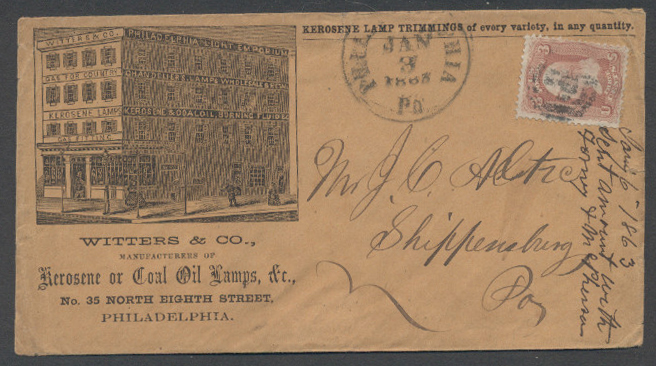 KEROSENE LAMP TRIMMINGS of every variety, in any quantity.
WITTERS & CO.
PHILADELPHIA LIGHT EMPORIUM
GAS FOR COUNTRY
CHANDELIERS LAMPS WHOLESALE &
KEROSENE LAMPS
KEROSENE & COAL OIL BURNING FLUID &
GAS FITTING
WITTERS & CO.,
MANUFACTURERS OF
Kerosene or Coal Oil Lamps, &c.,
No. 35 NORTH EIGHTH STREET,
PHILADELPHIA.
JAN
3
1863
Pa
Mr J. C.
Shippensburg
Pa
Jany 6 - 1863
Sent amount with
Horney & McPherson